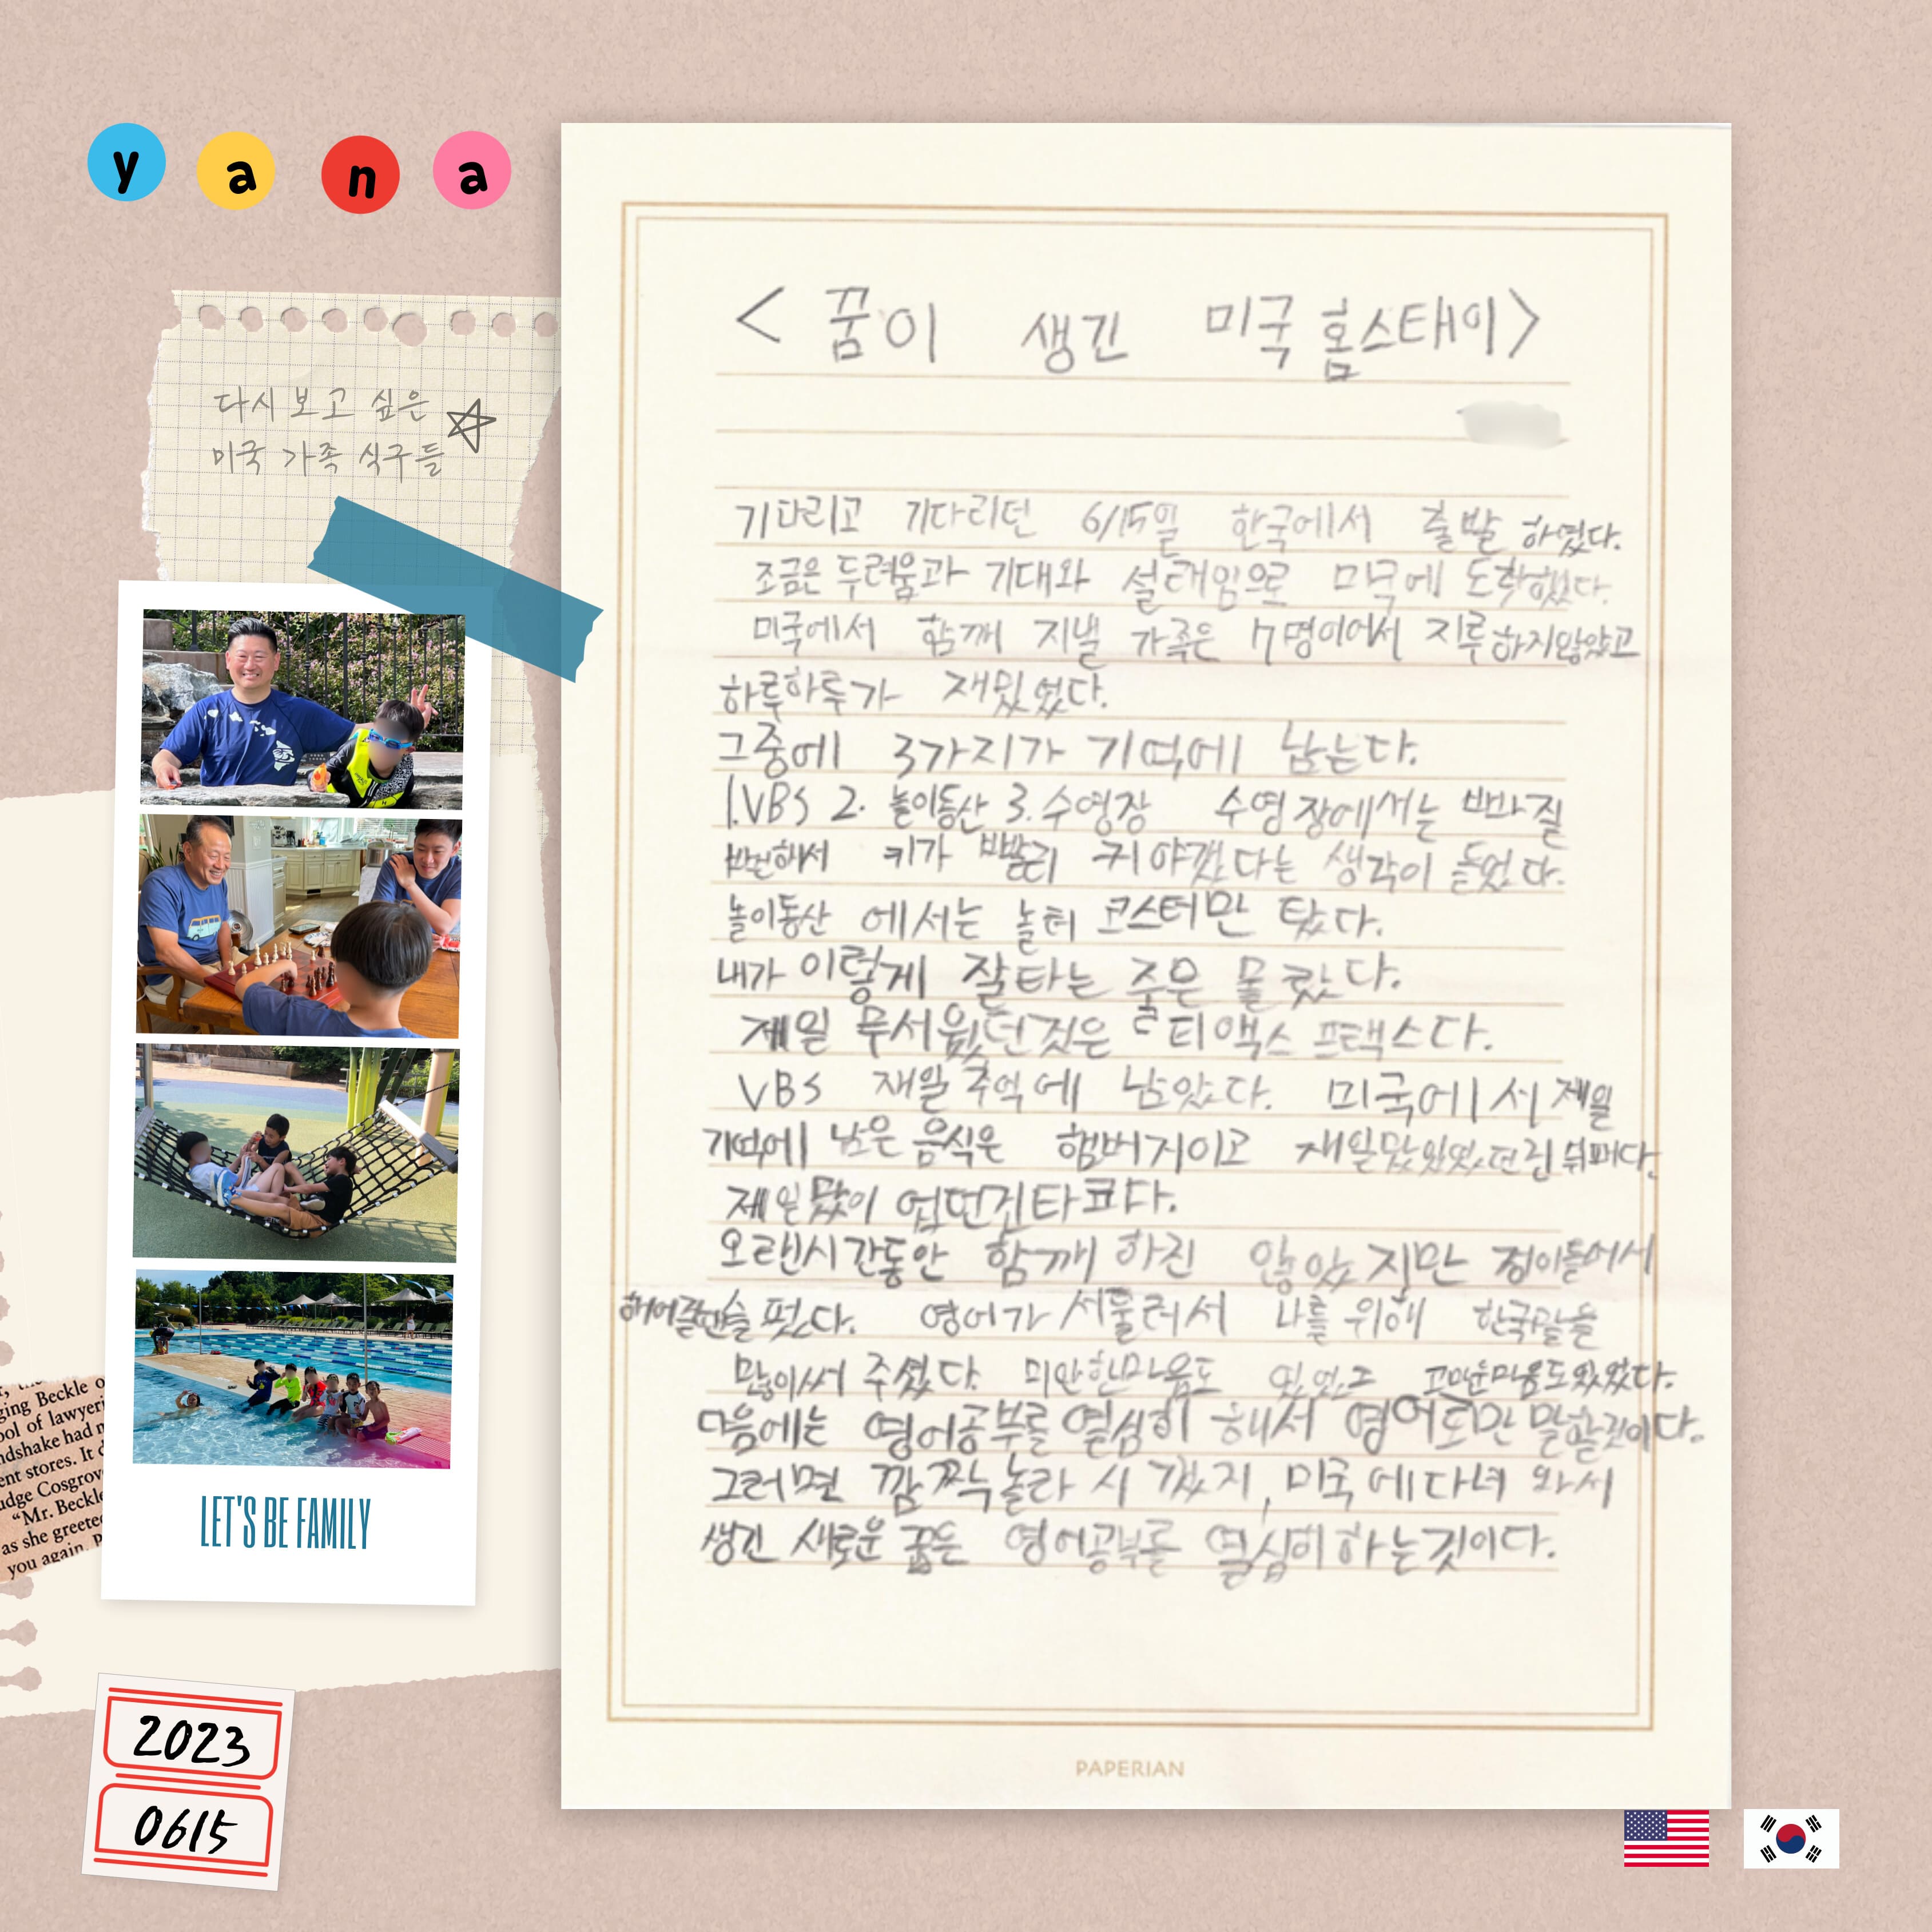 y a n a
다시 보고 싶은
미국 가족 식구들
< 꿈이 생긴 미국 홈스태이>
기다리고 기다리던 6/15일 한국에서 출발 하였다.
조금은 두려움과 기대와 설래임으로 미국에 도착했다.
미국에서 함께 지낼 가족은 7명이어서 지루하지않았고
하루하루가 재밌었다.
그중에 3가지가 기억에 남는다.
1.VBS 2. 놀이동산 3.수영장 수영장에서는 빠지질
해서 키가 빨리 커야겠다는 생각이 들었다.
놀이동산 에서는 놀러 코스터만 탔다.
내가 이렇게 잘타는 줄은 몰랐다.
제일 무서웠던것은 티액스 프랙스다.
VBS 재일 추억에 남았다. 미국에서 제일
기억에 남은 음식은 햄버거이고 재일맜있었던긴 쉬패다.
제일맜이 업떤긴타코다.
오랜시간동안 함께 하진 않았지만 정이들어서
슬펐다. 영어가 서툴러서 나를 위해 한국말을
많이써 주셨다. 미안한마음도 있었고 고마운마음도있었다.
다음에는 영어공부를 열심히 해서 영어로만 말할것이다.
그러면 깜짝놀라 시 겠지, 미국에다녀 와서
생긴 새로운 꿈은 영어공부를 열심히하는것이다.
PAPERIAN
LET'S BE FAMILY
ging Beckle o
ool of lawyer
ndshake had n
ent stores. It d
udge Cosgrov
“Mr. Beckle
as she greete
you again.
2023
0615